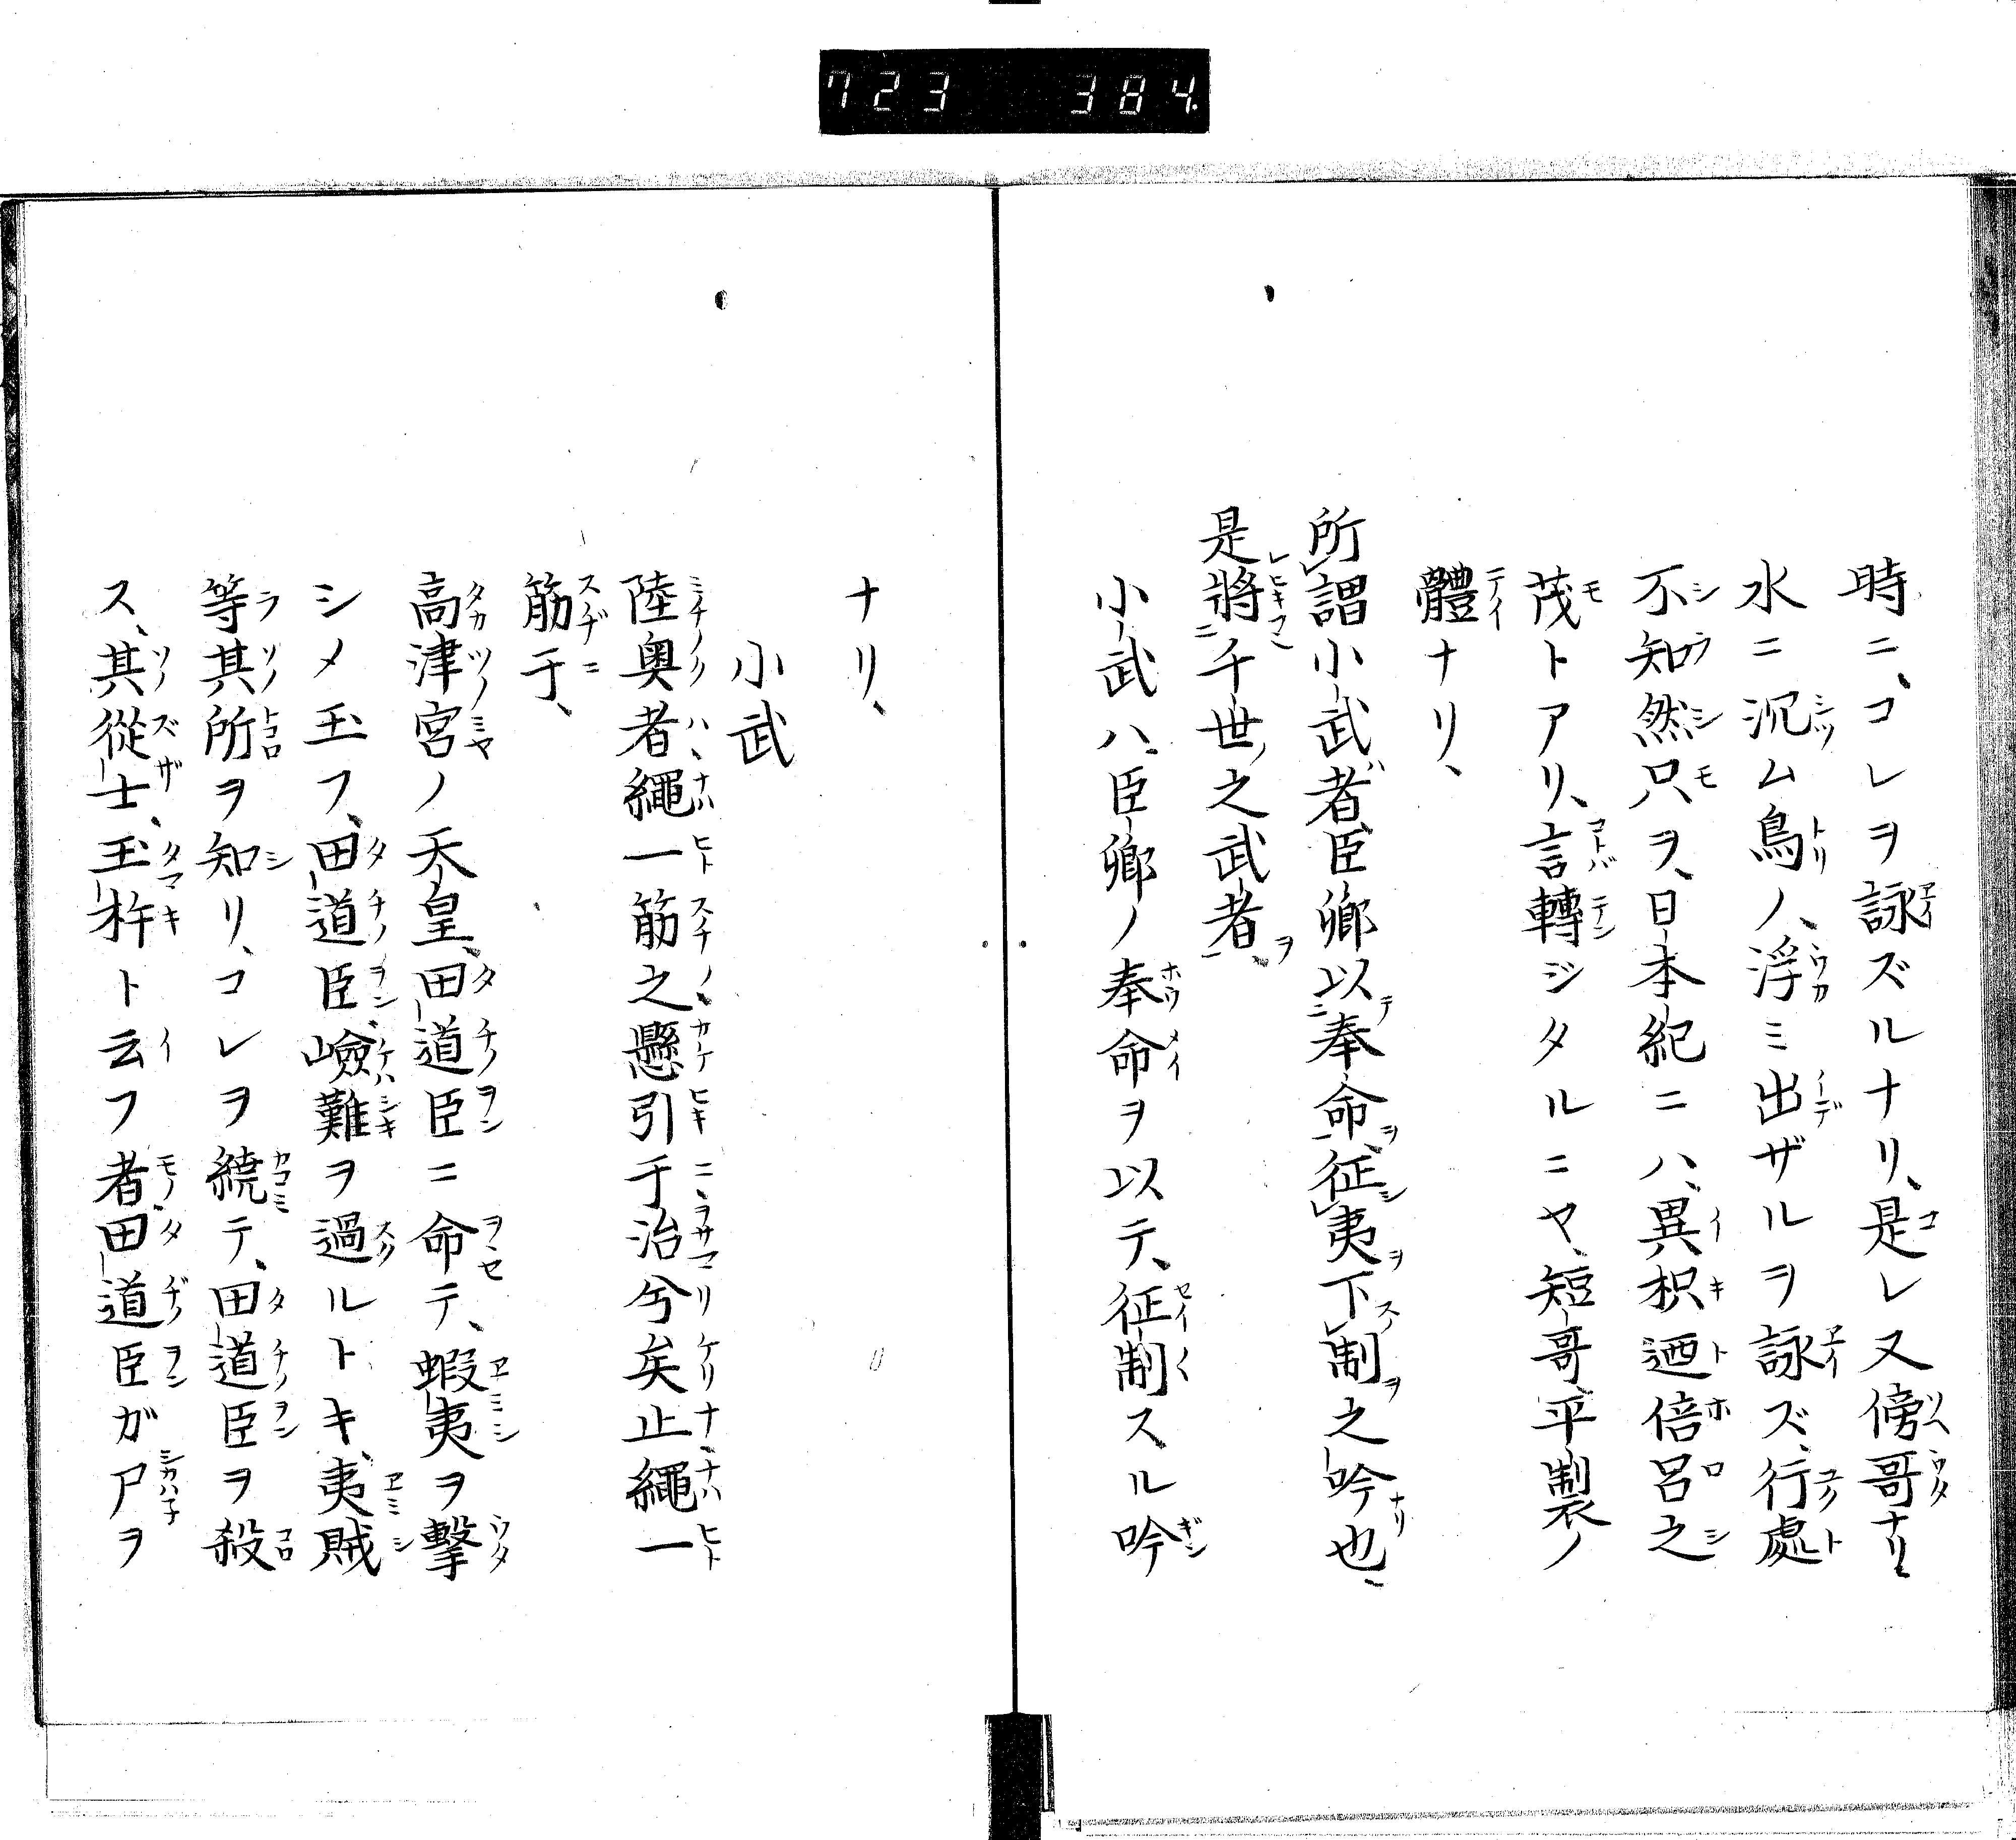 723 384
時ニ、コレヲ詠ズルナリ、是レ又傍哥ナリ、
水ニ沉ム鳥ノ、浮ミ出ザルヲ詠ズ、行處
不知然只ヲ、日本紀ニハ、異枳迺倍呂之
茂トアリ、言轉ジタルニヤ、短哥、平製ノ
體ナリ、
所謂小武者、臣卿以奉命、征夷下制之吟也、
是將千世之武者、
小武ハ、臣卿ノ奉命ヲ以テ、征制スル吟
ナリ、
小武
陸奥者繩一筋之懸引于治兮矣止繩一
筋于、
高津宮ノ天皇、田道臣ニ命テ、蝦夷ヲ撃
シメ玉フ、田道臣、嶮難ヲ過ルトキ、夷賊
等其所ヲ知リ、コレヲ繞テ、田道臣ヲ殺
ス、其從士、玉杵ト云フ者、田道臣ガ尸ヲ